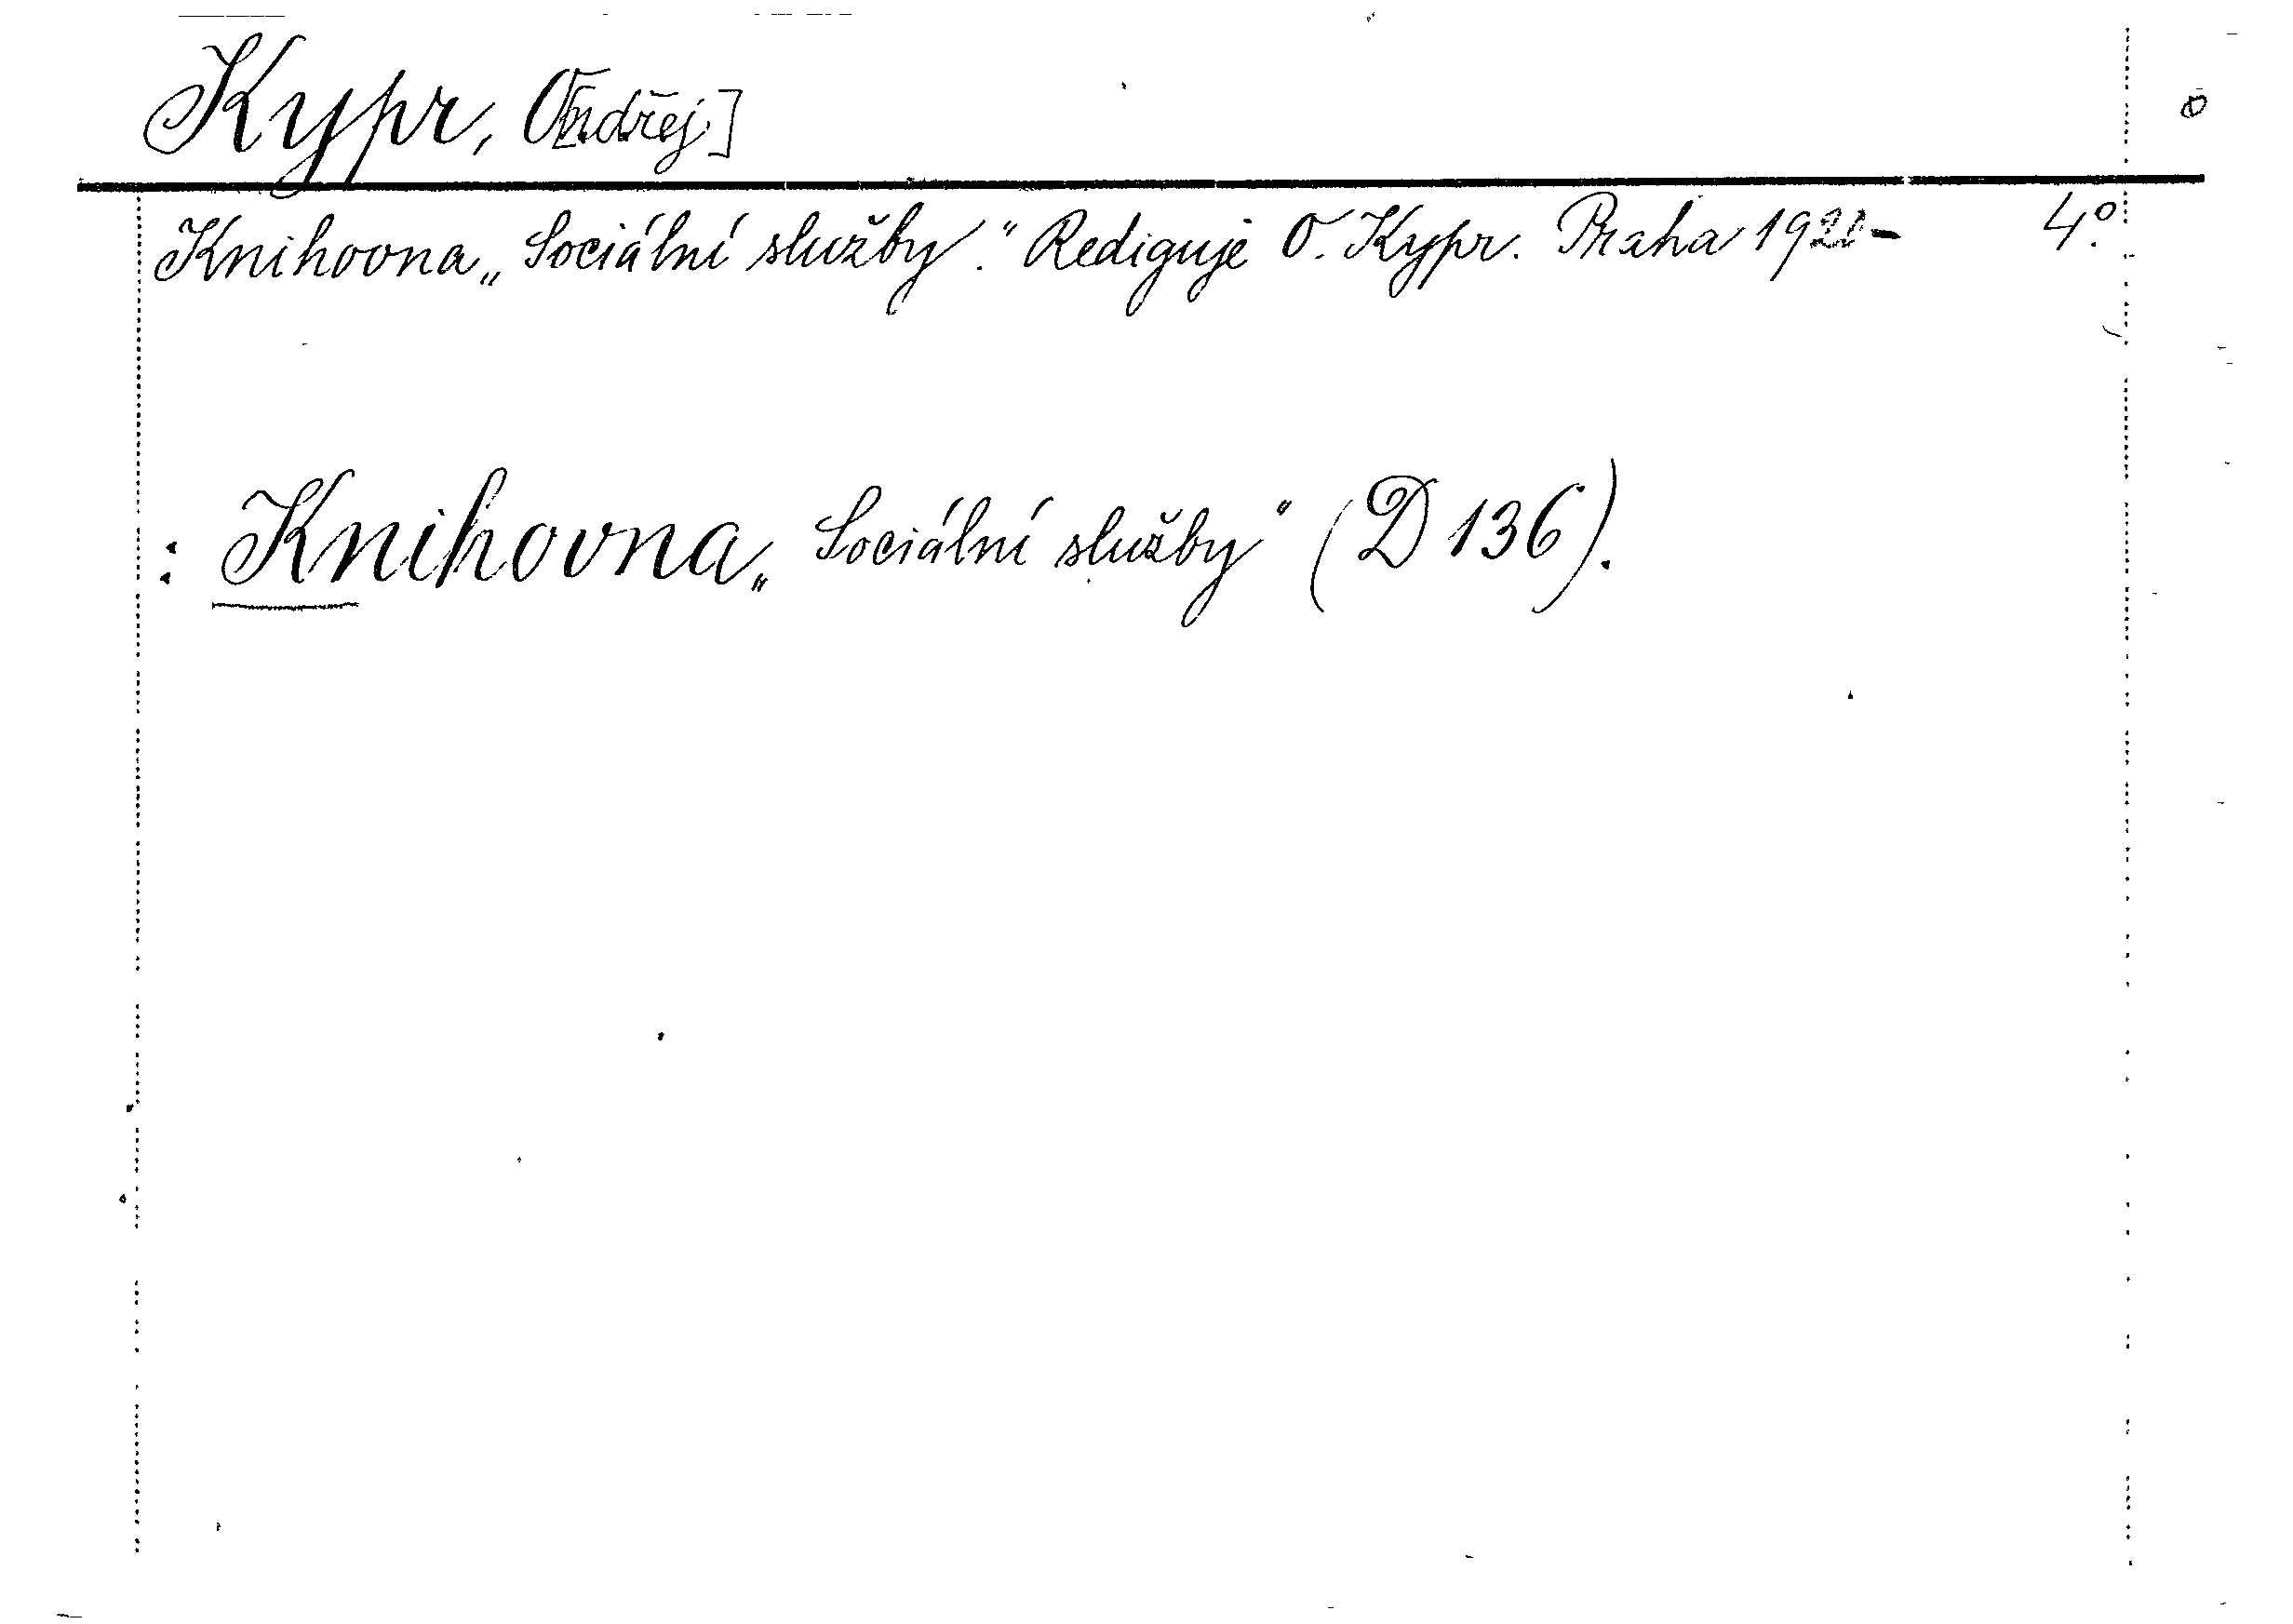 Kypr, O[ndřej]
Knihovna „Sociální služby." Rediguje O. Kypr. Praha 1921- 4°.
: Knihovna „Sociální služby" (D 136).